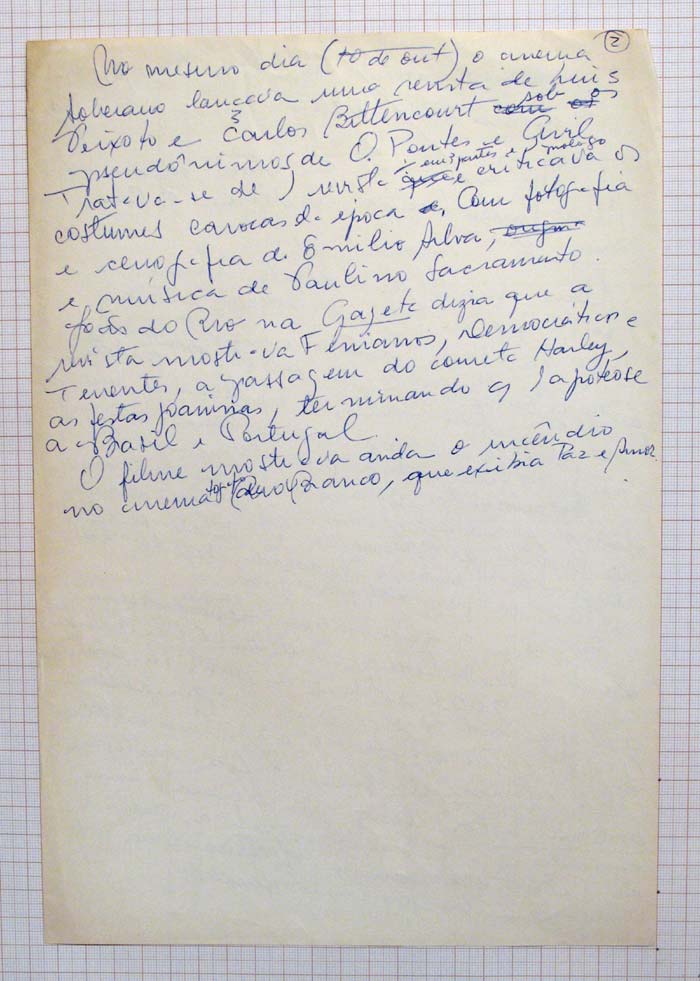 2
No mesmo dia (10 de out) o cinema
Soberano lançava uma revista de Luis
Peixoto e Carlos Bittencourt com sob os
pseudônimos de O. Pontes e Avil.
Tratava-se de 1 revista em 3 partes e prólogo que criticava os
costumes cariocas da época e, Com fotografia
e cenografia de Emilio Silva,
e música de Paulino Sacramento.
João do Rio na Gazeta dizia que a
revista mostrava Fenianos, Democráticos e
Tenentes, a passagem do cometa Harley,
as festas joaninas, terminando c/ 1 apoteose
a Brasil e Portugal.
O filme mostrava ainda o incêndio
no cinematógrafo Rio Branco, que exibia Paz e Amor.